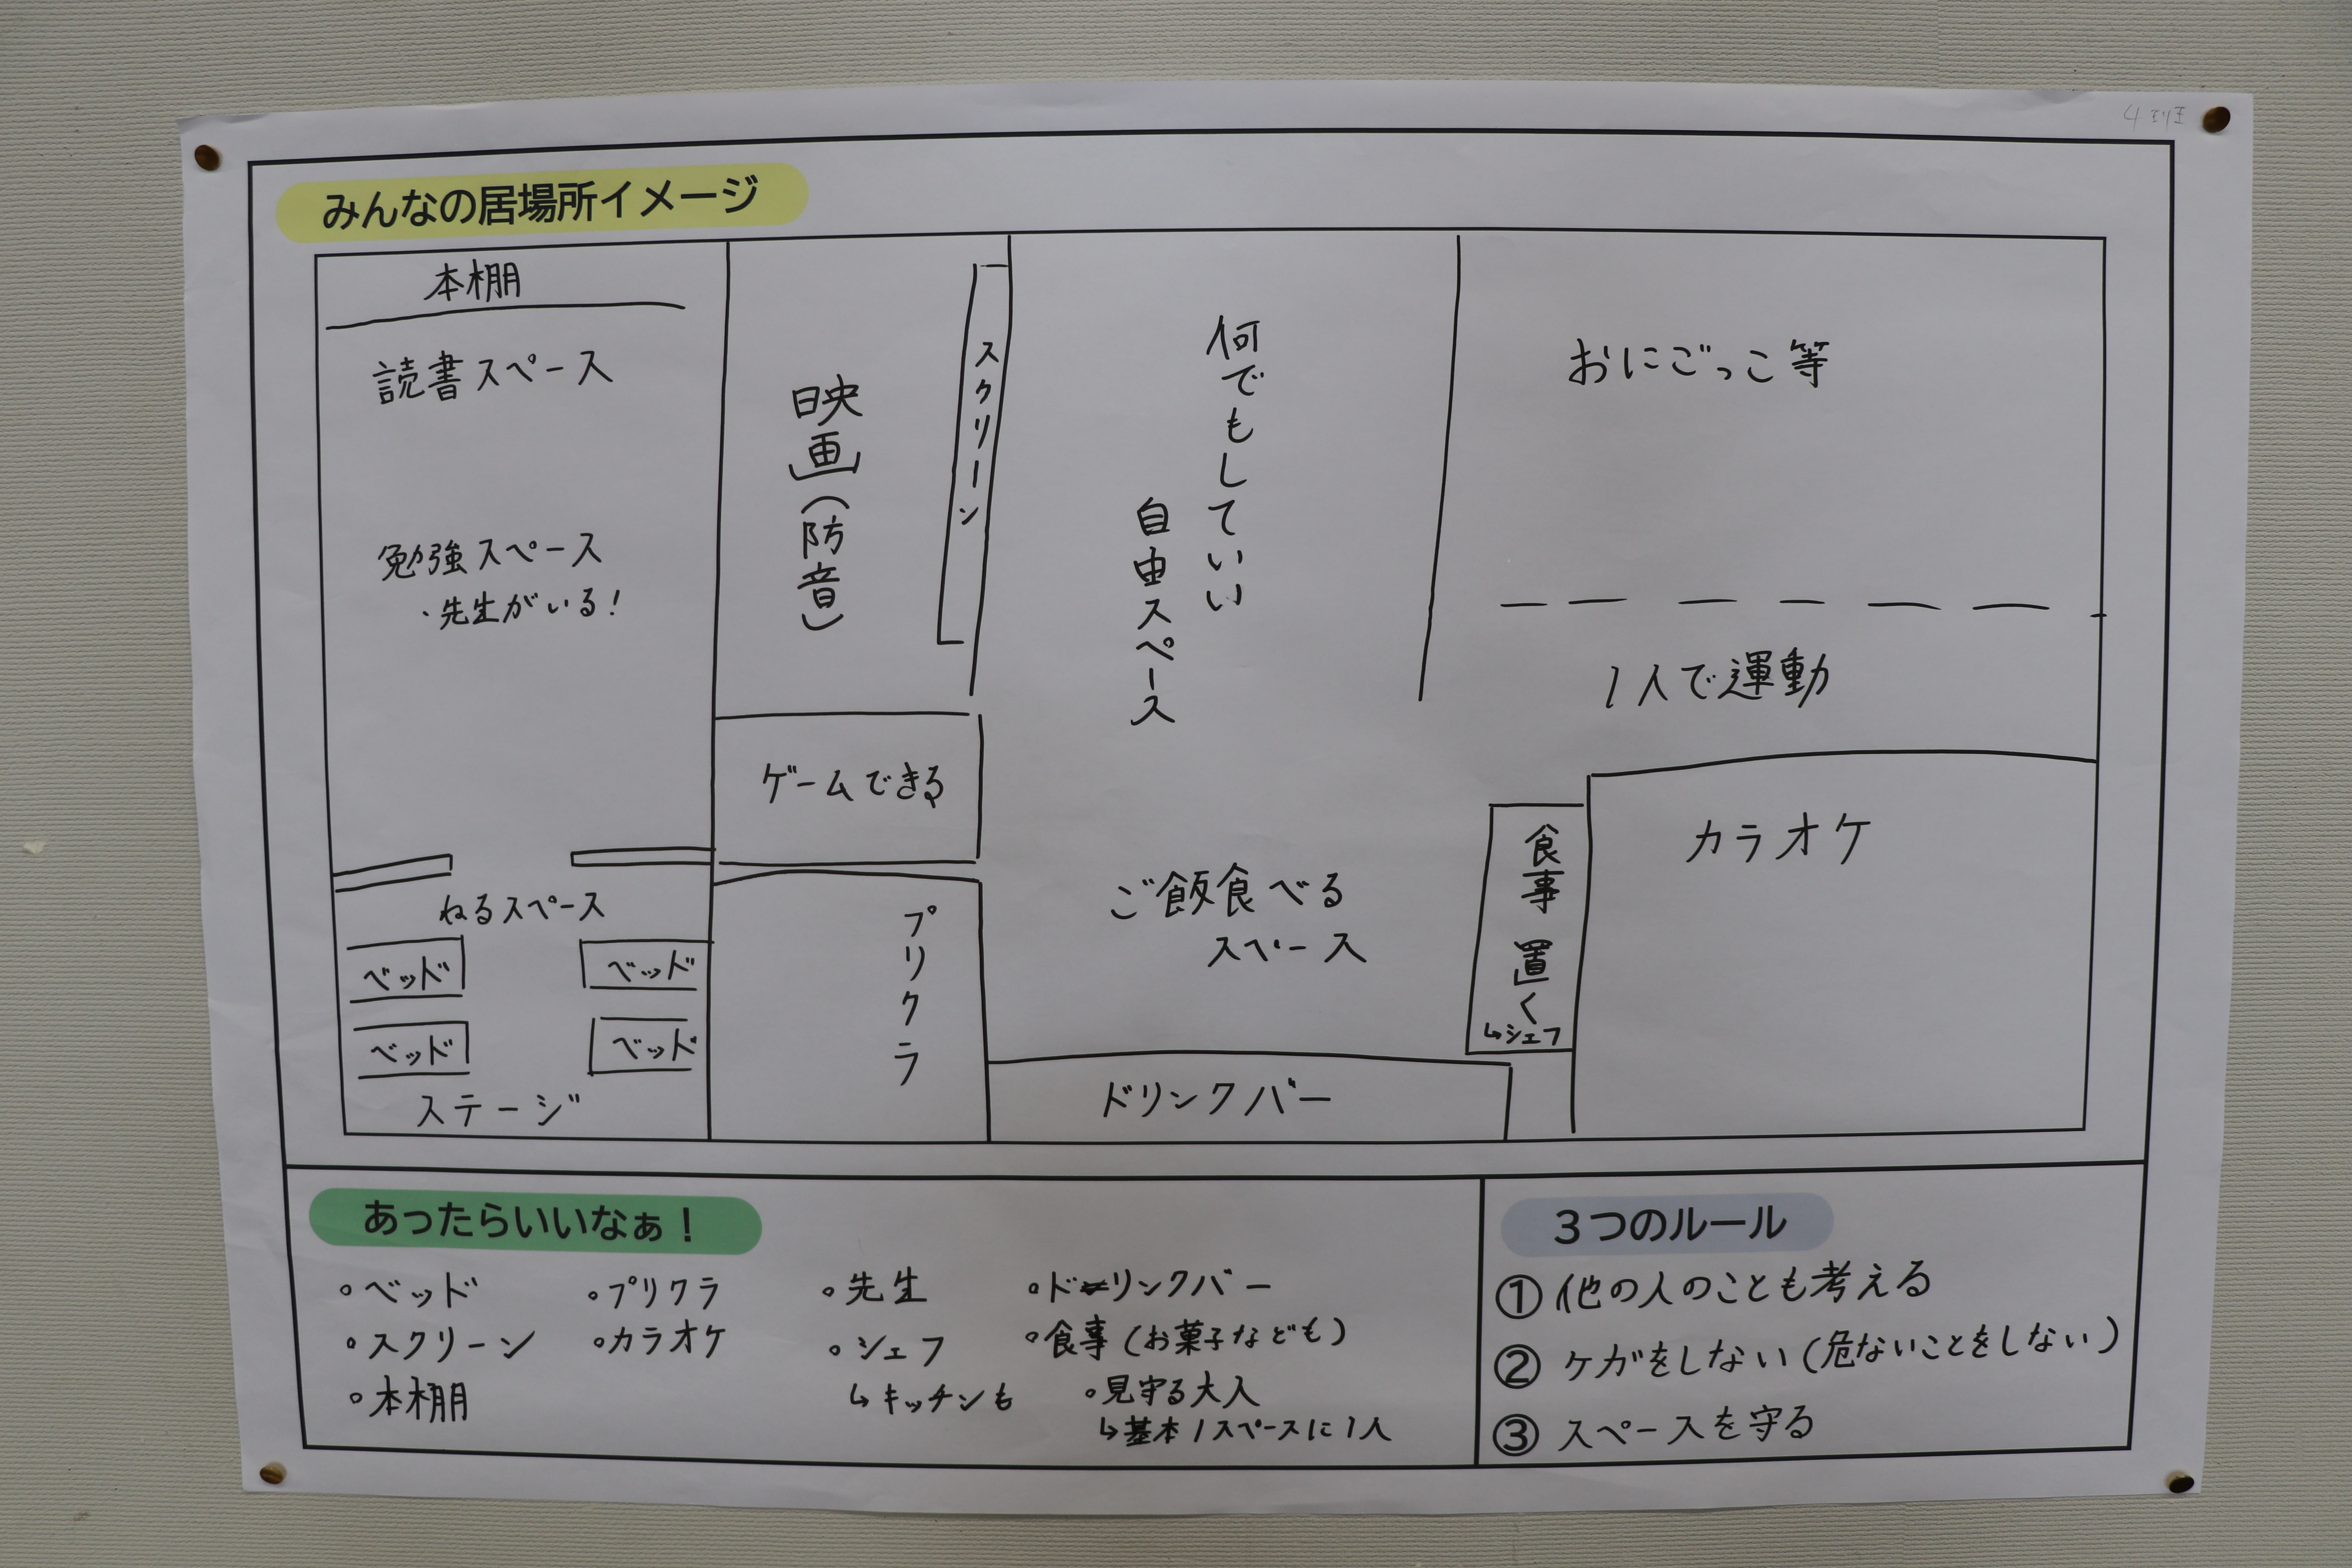 4班
みんなの居場所イメージ
本棚
読書スペース
勉強スペース
・先生がいる!
ねるスペース
ベッド
ベッド
ベッド
ベッド
ステージ
映画(防音)
スクリーン
ゲームできる
プリクラ
何でもしていい
自由スペース
ご飯食べる
スペース
ドリンクバー
食事置く
↳シェフ
おにごっこ等
1人で運動
カラオケ
あったらいいなぁ!
◦ベッド
◦スクリーン
◦本棚
◦プリクラ
◦カラオケ
◦先生
◦シェフ
↳キッチンも
◦ドリンクバー
◦食事(お菓子なども)
◦見守る大人
↳基本1スペースに1人
3つのルール
① 他の人のことも考える
② ケガをしない(危ないことをしない)
③ スペースを守る